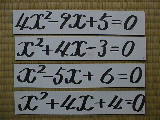 4x²-9x+5=0
x²+4x-3=0
x²-5x+6=0
x²+4x+4=0